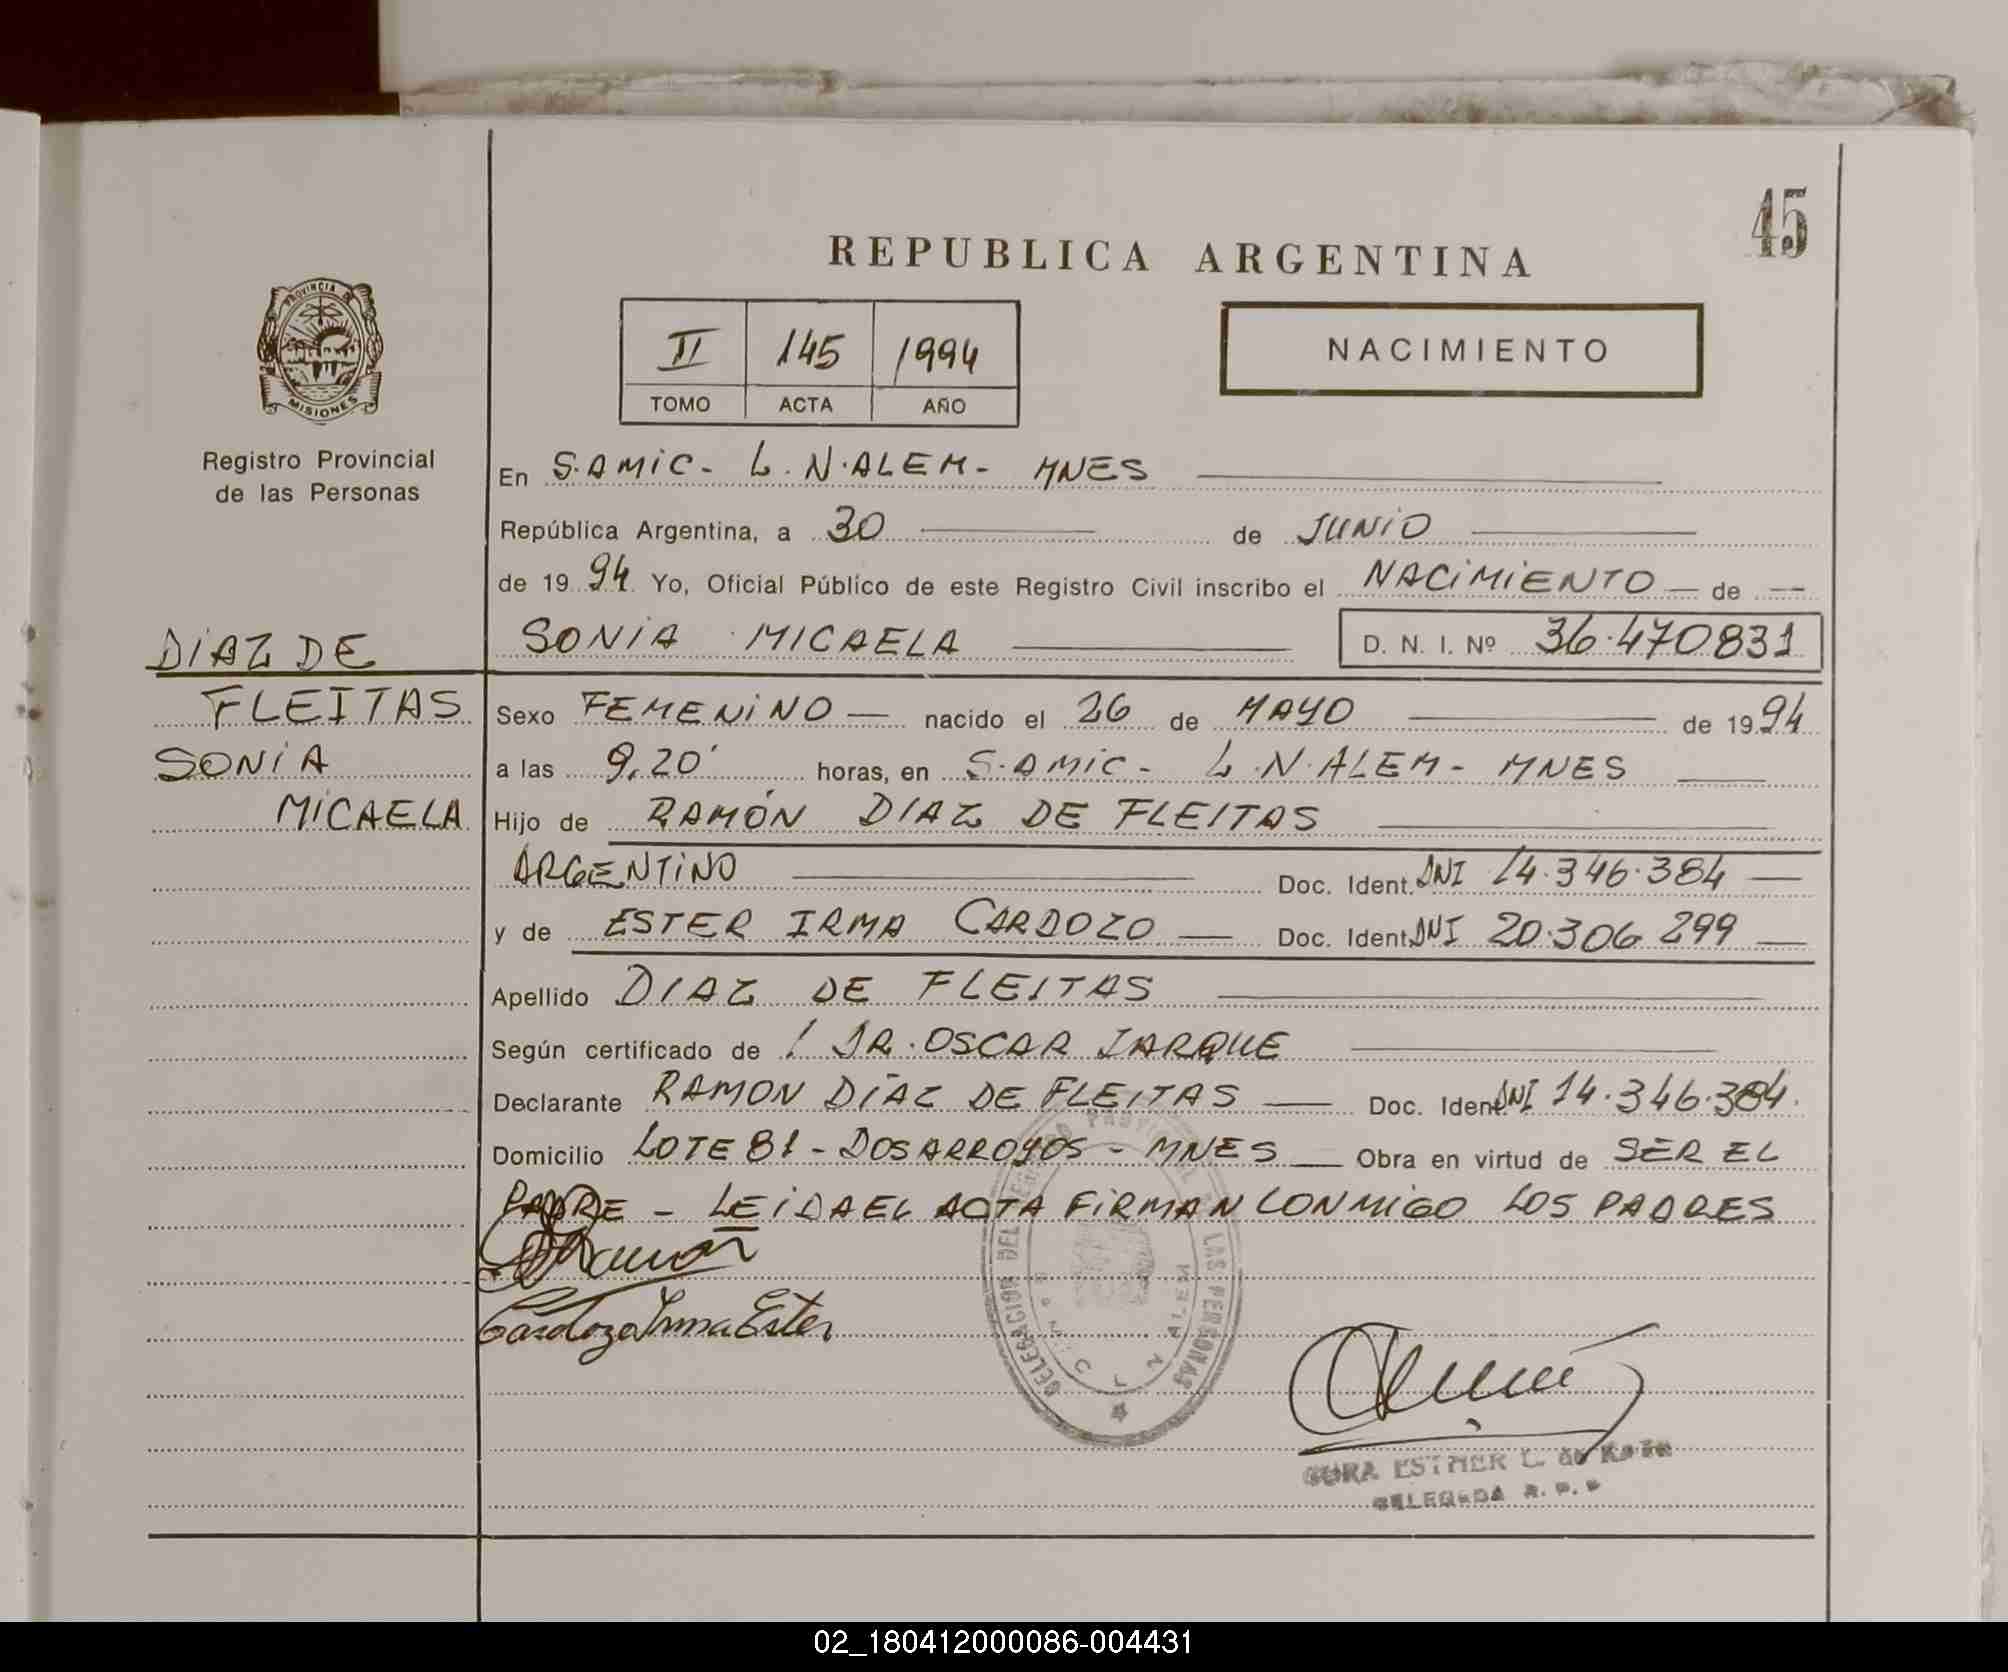 45
REPUBLICA ARGENTINA
PROVINCIA DE
MISIONES
Registro Provincial
de las Personas
II 145 1994
TOMO ACTA AÑO
NACIMIENTO
En S.AMIC- L.N.ALEM- MNES
República Argentina, a 30 de JUNIO
de 1994 Yo, Oficial Público de este Registro Civil inscribo el NACIMIENTO de
SONIA MICAELA D. N. I. Nº 36.470831
DIAZ DE
FLEITAS
SONIA
MICAELA
Sexo FEMENINO nacido el 26 de MAYO de 1994
a las 9,20' horas, en S.AMIC- L.N.ALEM- MNES
Hijo de RAMÓN DIAZ DE FLEITAS
ARGENTINO Doc. Ident. DNI 14.346.384
y de ESTER IRMA CARDOZO Doc. Ident. DNI 20.306.299
Apellido DIAZ DE FLEITAS
Según certificado de DR. OSCAR JARQUE
Declarante RAMON DIAZ DE FLEITAS Doc. Ident. DNI 14.346.384.
Domicilio LOTE 81 - DOS ARROYOS - MNES Obra en virtud de SER EL
PADRE - LEIDA EL ACTA FIRMAN CONMIGO LOS PADRES
Ramon
Cardozo Irma Ester
DELEGACION DEL REGISTRO PROVINCIAL DE LAS PERSONAS
L N ALEM
ESTHER L. de
DELEGADA R. P. P
02_180412000086-004431